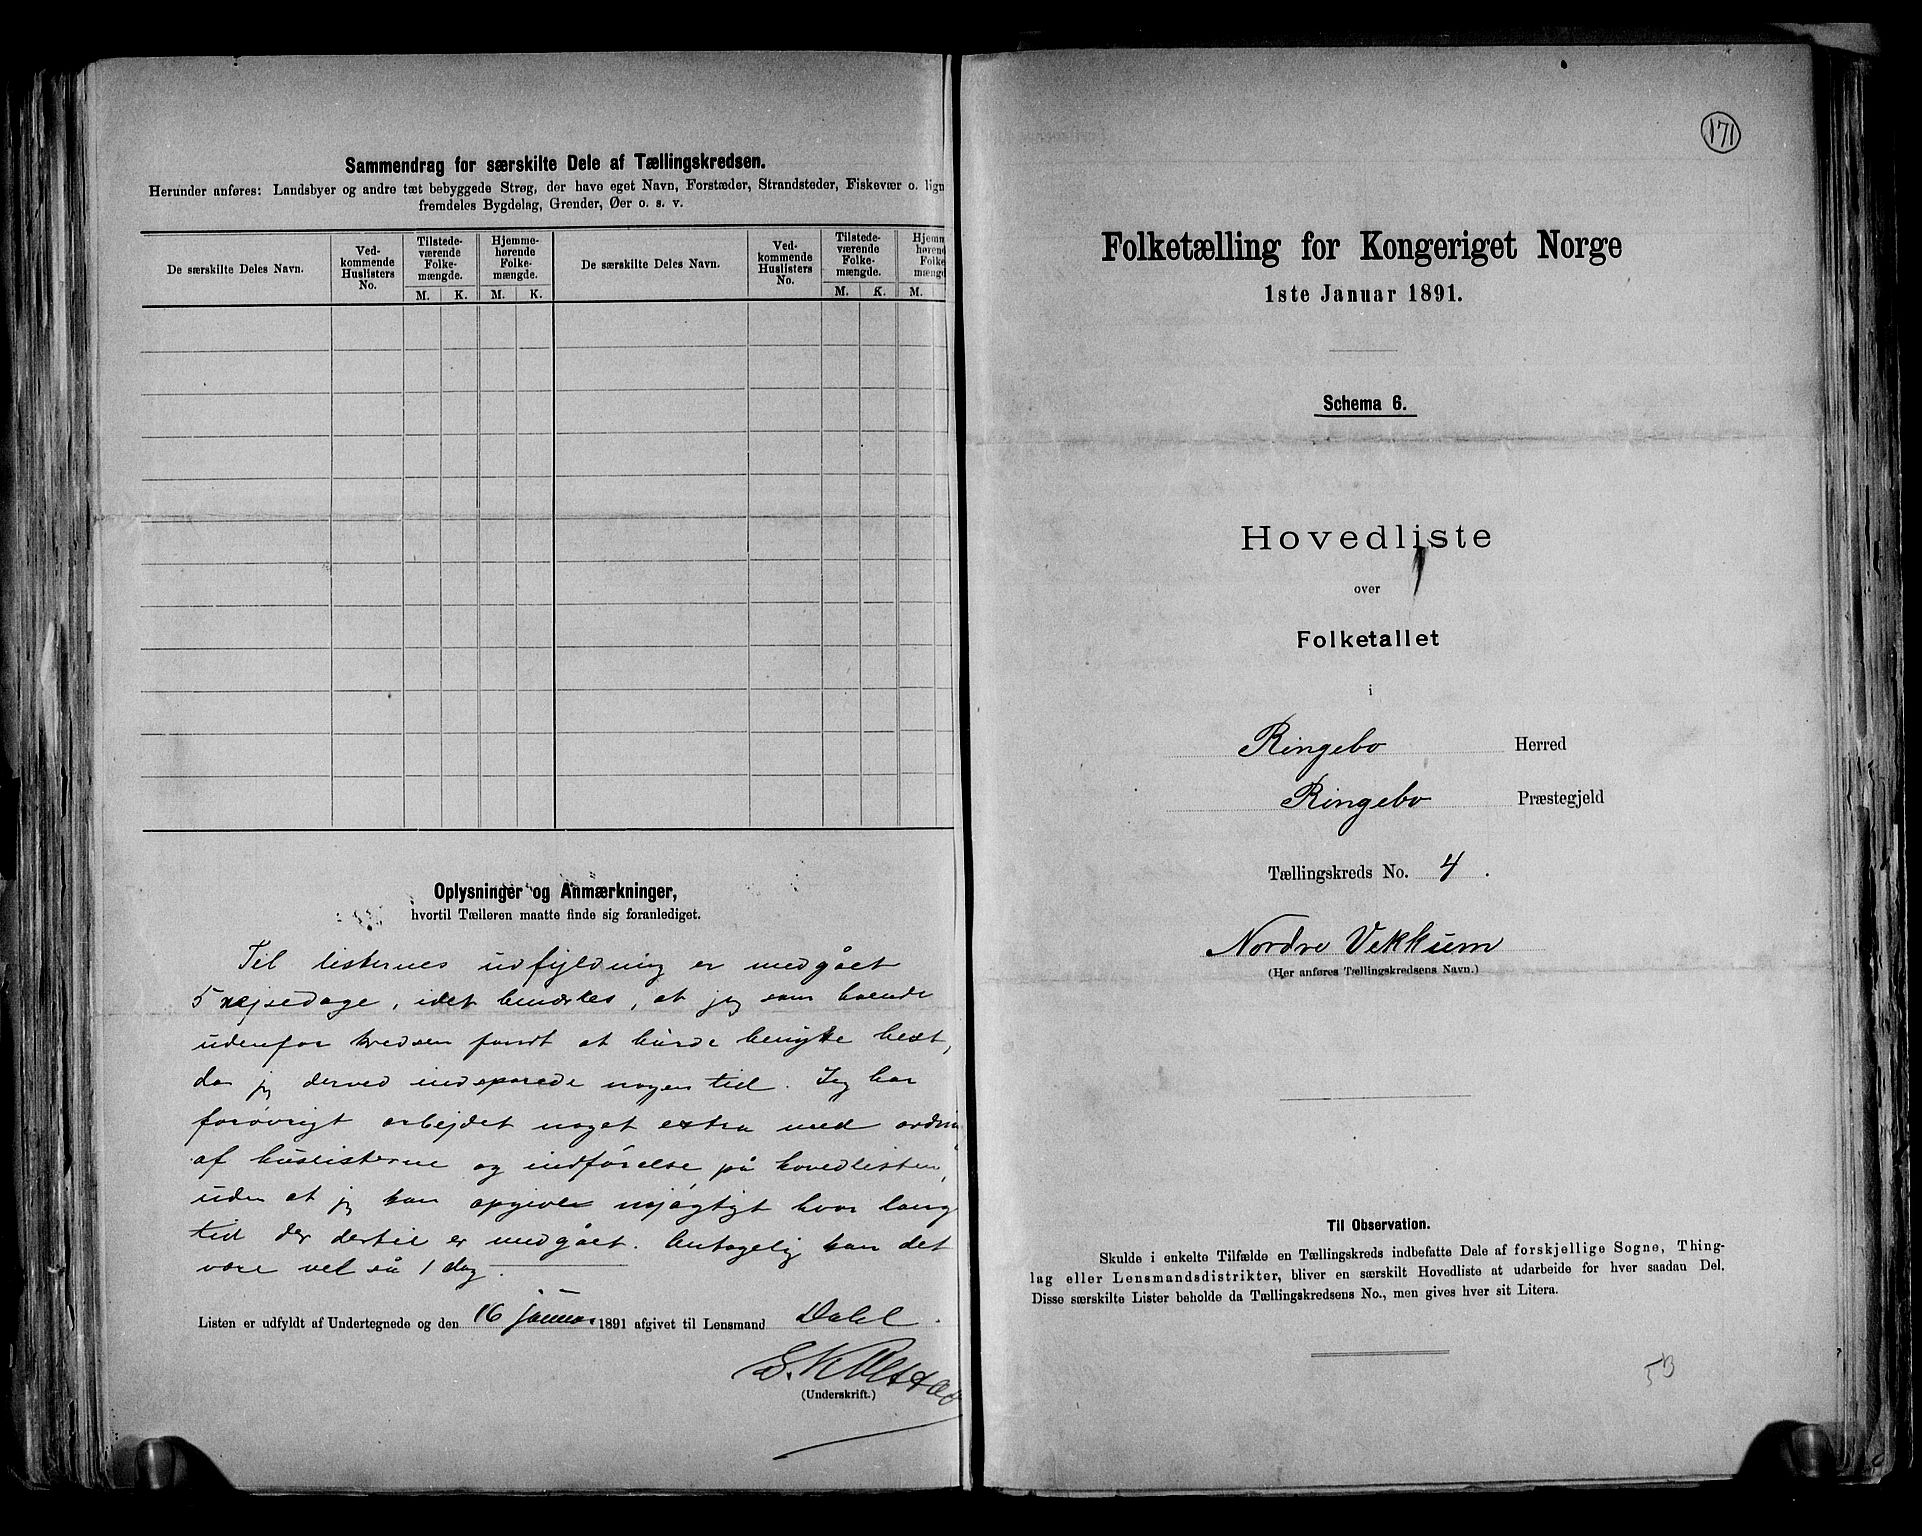 Sammendrag for særskilte Dele af Tællingskredsen.
Herunder anføres: Landsbyer og andre tæt bebyggede Strøg, der have eget Navn, Forstæder, Strandsteder, Fiskevær o. lign
fremdeles Bygdelag, Grender, Øer o. s. v.
De særskilte Deles Navn.
Ved-
kommende
Huslisters
No.
Tilstede-
værende
Folke-
mængde.
Hjemme-
hørende
Folke-
mængde.
M. K. M. K.
De særskilte Deles Navn.
Ved-
kommende
Huslisters
No.
Tilstede-
værende
Folke-
mængde.
Hjemm
hørend
Folke
mængd
M. K. M.
Oplysninger og Anmærkninger,
hvortil Tælleren maatte finde sig foranlediget.
Til listernes udfyldning er medgået
5 rejsedage, idet bemærkes, at jeg som boende
udenfor kredsen fandt at burde benytte hest,
da jeg derved indsparede nogen tid. Jeg har
forøvrigt arbejdet noget extra med ordni
af huslisterne og indførelse på hovedlisten,
uden at jeg kan opgive nøjagtigt hvor lang
tid der dertil er medgået. Antagelig kan det
være vel så 1 dag.
Listen er udfyldt af Undertegnede og den 16 januar 1891 afgivet til Lensmand Dahl.
(Underskrift.)
171
Folketælling for Kongeriget Norge
1ste Januar 1891.
Schema 6.
Hovedliste
over
Folketallet
i
Ringebo Herred
Ringebo Præstegjeld
Tællingskreds No. 4.
Nordre Vekkum
(Her anføres Tællingskredsens Navn.)
Til Observation.
Skulde i enkelte Tilfælde en Tællingskreds indbefatte Dele af forskjellige Sogne, Thing-
lag eller Lensmandsdistrikter, bliver en særskilt Hovedliste at udarbeide for hver saadan Del.
Disse særskilte Lister beholde da Tællingskredsens No., men gives hver sit Litera.